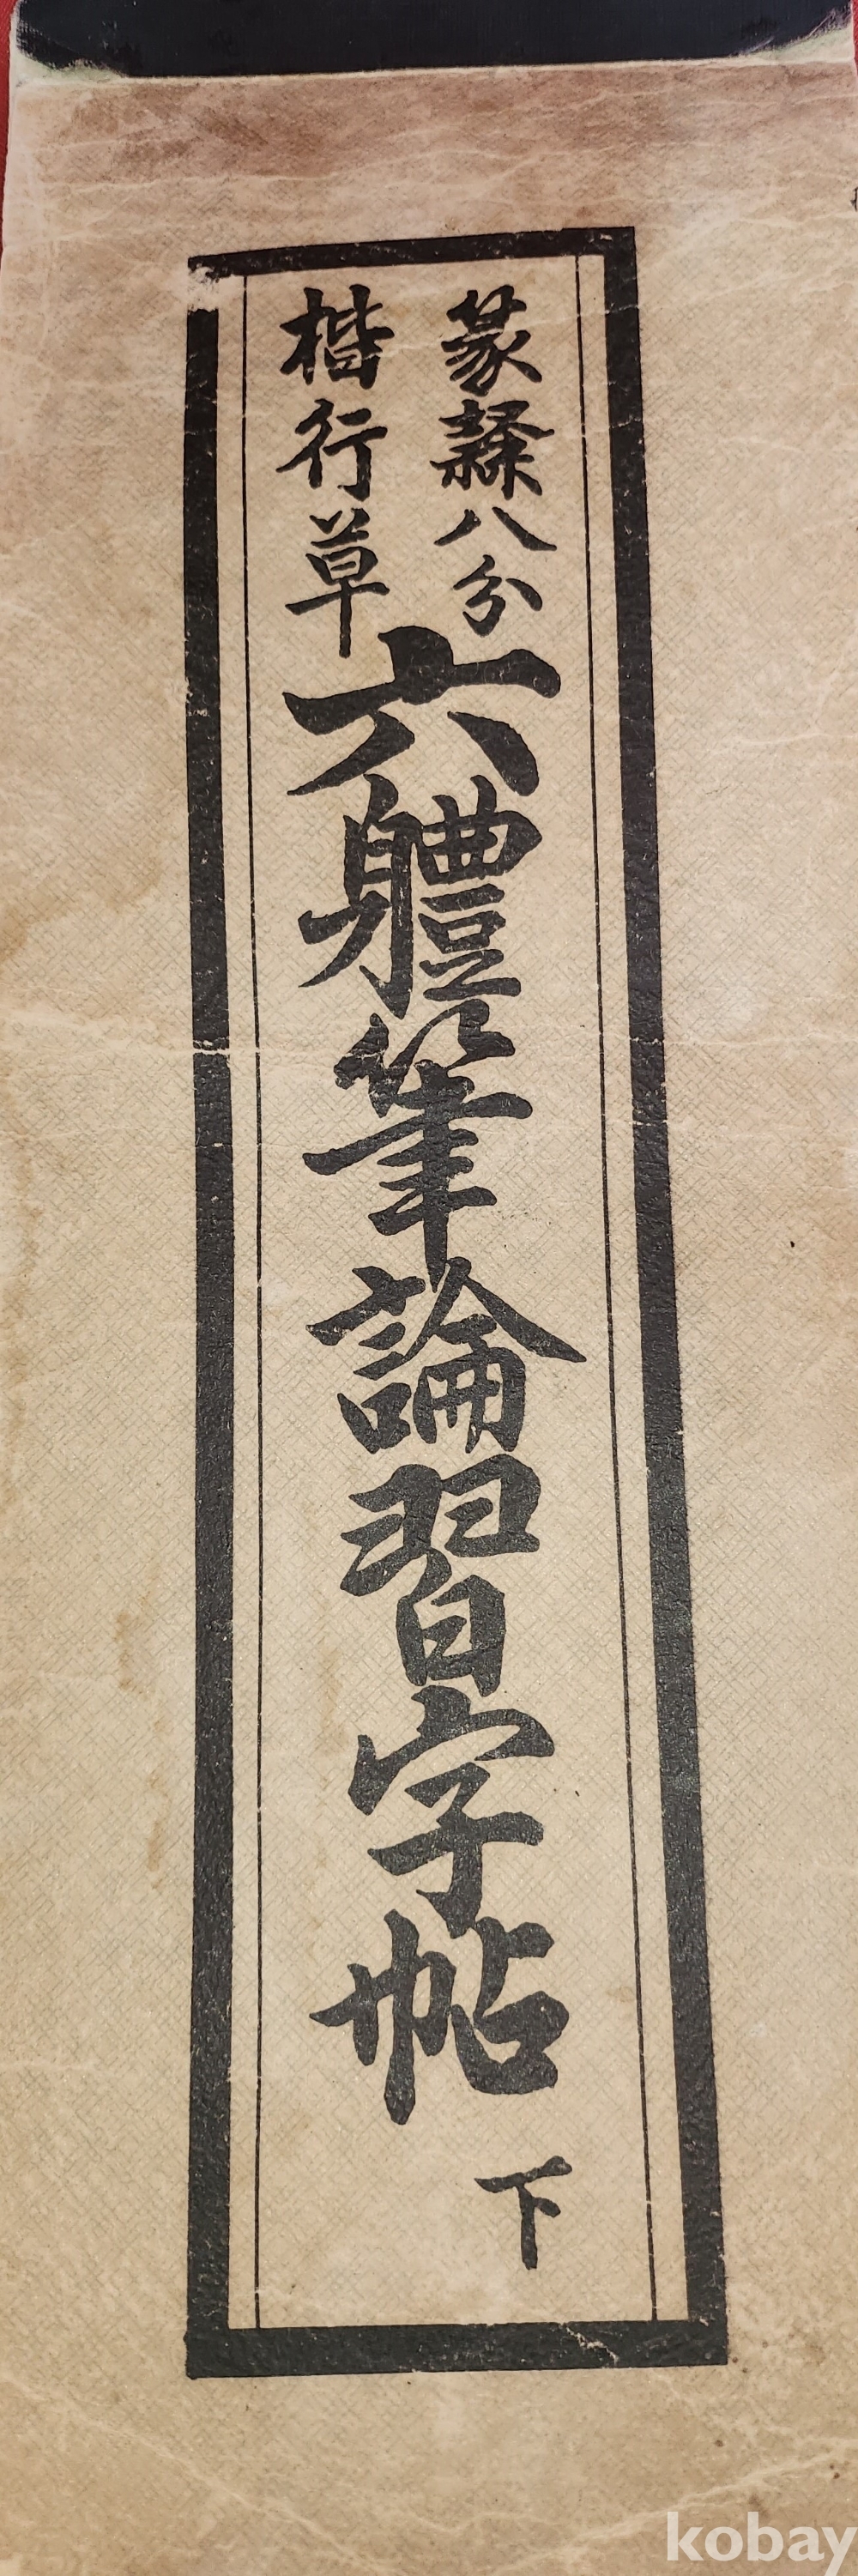 篆隸八分
楷行草
六軆筆論習字帖
下
kobay